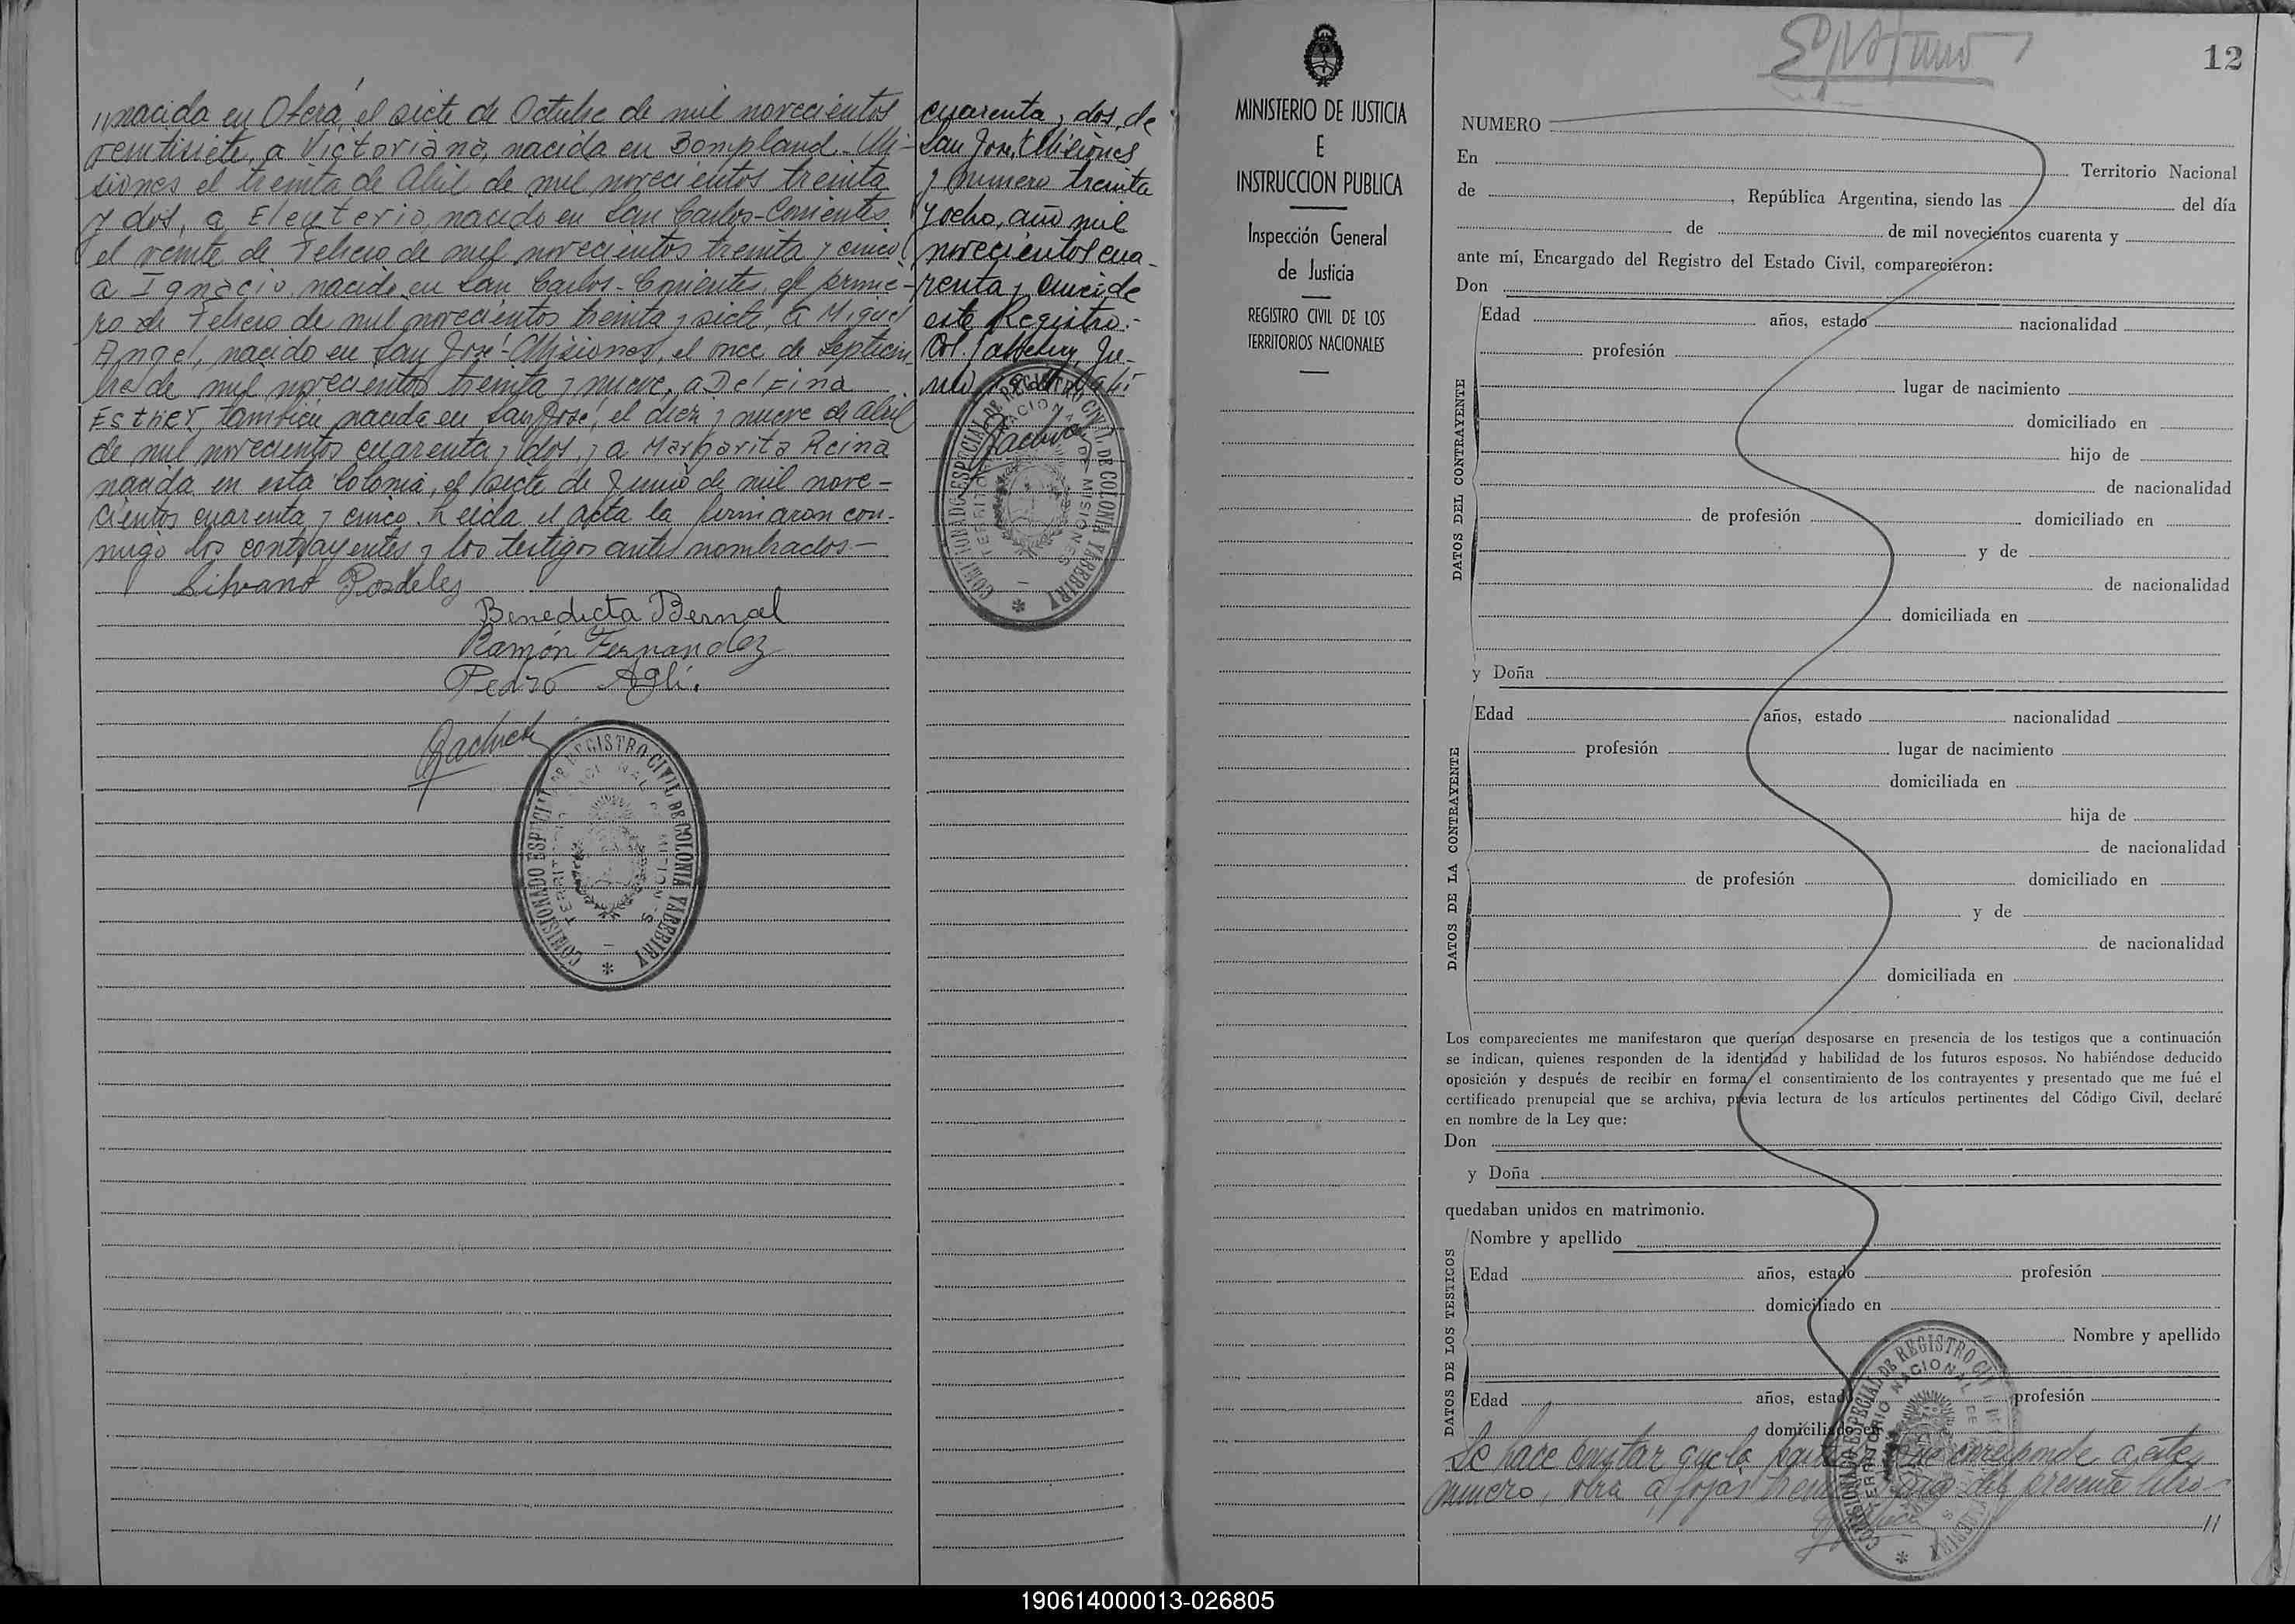 nacida en Oberá, el siete de Octubre de mil novecientos
veintisiete, a Victoriana, nacida en Bompland-Mi-
siones el treinta de Abril de mil novecientos treinta
y dos, a Eleuterio, nacido en San Carlos-Corrientes
el veinte de Febrero de mil novecientos treinta y cinco,
a Ignacio, nacido en San Carlos-Corrientes, el prime-
ro de Febrero de mil novecientos treinta y siete, a Miguel
Angel, nacido en San José-Misiones, el once de Septiem-
bre de mil novecientos treinta y nueve, a Delfina
Esther, también nacida en San José, el diez y nueve de Abril
de mil novecientos cuarenta y dos, y a Margarita Reina
nacida en esta Colonia, el siete de Junio de mil nove-
cientos cuarenta y cinco. Leida el acta la firmaron con-
migo los contrayentes y los testigos antes nombrados-
Silvano
Benedicta Bernal
Ramón Fernandez
Pedro Aglí.
COMISIONADO ESPECIAL DE REGISTRO CIVIL DE COLONIA YABEBIRY
TERRITORIO NACIONAL DE MISIONES
cuarenta y dos, de
San José, Misiones
y número treinta
y ocho, año mil
novecientos cua-
renta y cinco de
este Registro.-
COMISIONADO ESPECIAL DE REGISTRO CIVIL DE COLONIA YABEBIRY
TERRITORIO NACIONAL DE MISIONES
MINISTERIO DE JUSTICIA
E
INSTRUCCION PUBLICA
Inspección General
de Justicia
REGISTRO CIVIL DE LOS
TERRITORIOS NACIONALES
12
NUMERO
En Territorio Nacional
de , República Argentina, siendo las del día
de de mil novecientos cuarenta y
ante mí, Encargado del Registro del Estado Civil, comparecieron:
Don
DATOS DEL CONTRAYENTE
Edad años, estado nacionalidad
profesión
lugar de nacimiento
domiciliado en
hijo de
de nacionalidad
de profesión domiciliado en
y de
de nacionalidad
domiciliada en
y Doña
DATOS DE LA CONTRAYENTE
Edad años, estado nacionalidad
profesión lugar de nacimiento
domiciliada en
hija de
de nacionalidad
de profesión domiciliado en
y de
de nacionalidad
domiciliada en
Los comparecientes me manifestaron que querían desposarse en presencia de los testigos que a continuación
se indican, quienes responden de la identidad y habilidad de los futuros esposos. No habiéndose deducido
oposición y después de recibir en forma el consentimiento de los contrayentes y presentado que me fué el
certificado prenupcial que se archiva, previa lectura de los artículos pertinentes del Código Civil, declaré
en nombre de la Ley que:
Don
y Doña
quedaban unidos en matrimonio.
DATOS DE LOS TESTIGOS
Nombre y apellido
Edad años, estado profesión
domiciliado en
Nombre y apellido
Edad años, estado profesión
domiciliado en
Se hace constar que la que corresponde a este
número, obra a fojas del presente libro
COMISIONADO ESPECIAL DE REGISTRO CIVIL DE
TERRITORIO NACIONAL DE
190614000013-026805